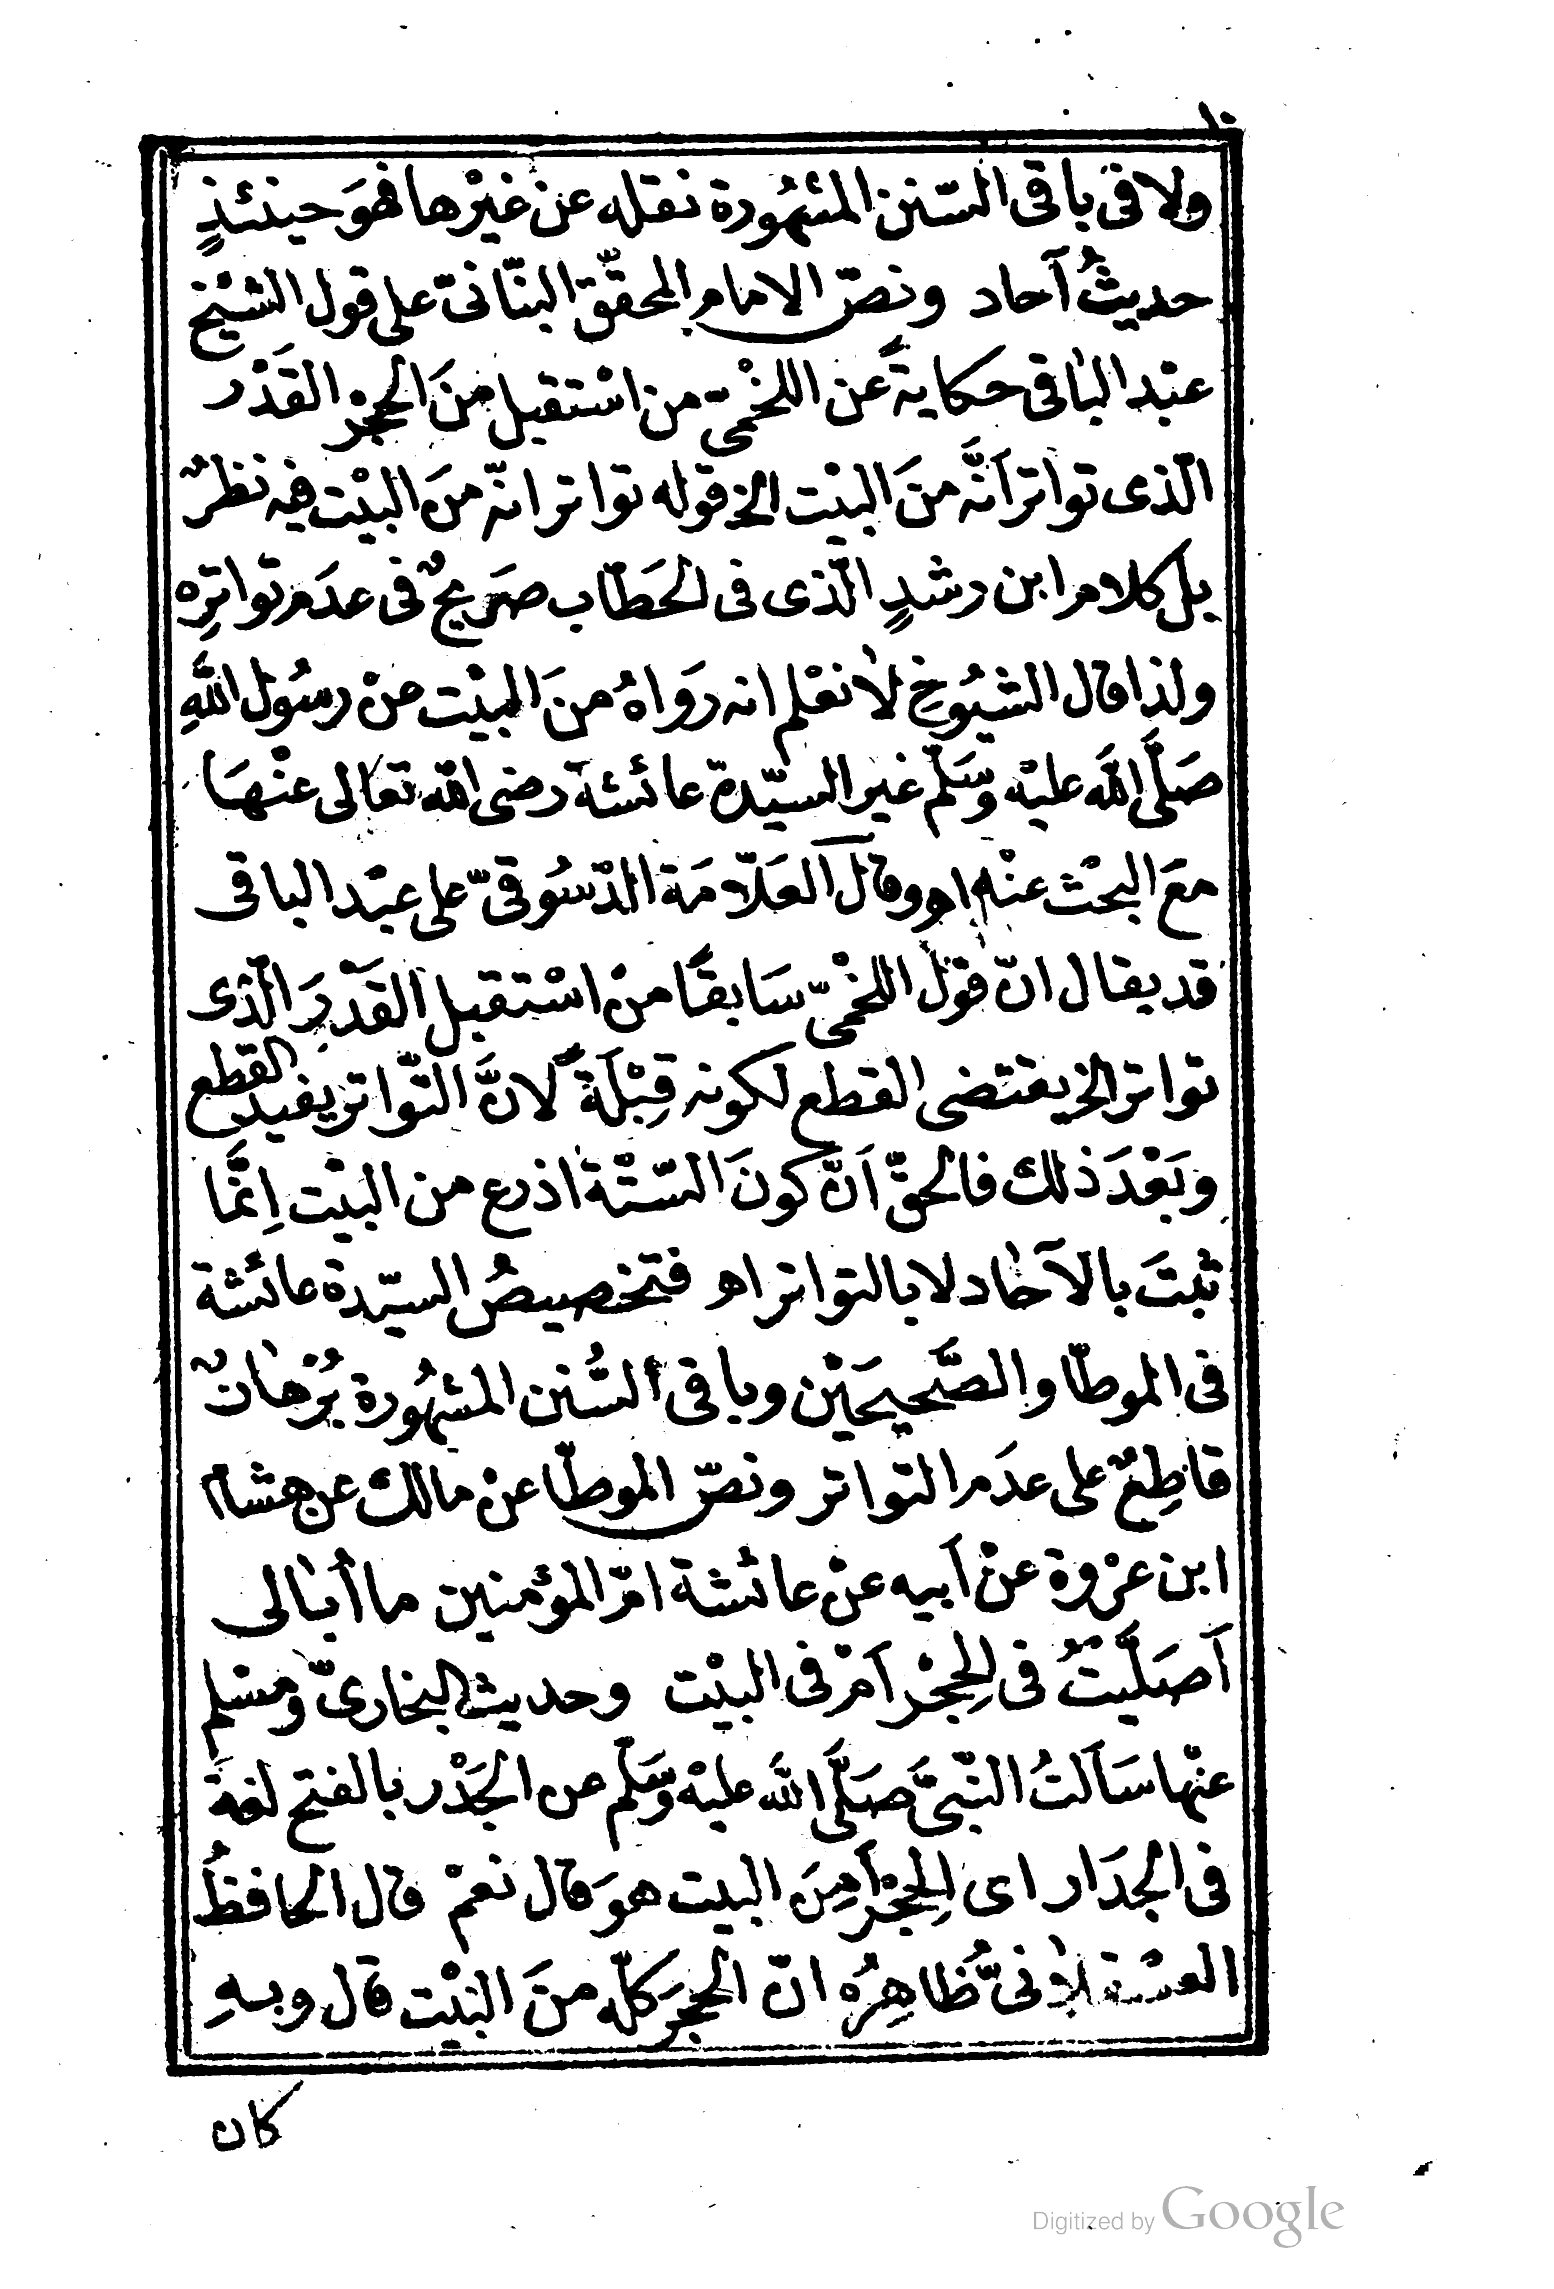 ١٠
ولا فى باقى السّنن المشهُورة نقله عن غيْرها فهوَ حينئذٍ
حديثُ آحاد ونصّ الامام المحقّق البنّانىّ على قول الشيْخ
عبْد الباقى حكايةً عن اللخْمىّ من اسْتقبل منَ الحِجْر القدْر
الّذى تواتر اَنَّه منَ البيْت الخ قوله تواتر انّه منَ البيْت فيه نظرٌ
بل كلام ابن رشدٍ الّذى فى الحَطّاب صَريحٌ فى عدَم تواتِره
ولذا قال الشيُوخ لا نعْلم انه رَوَاهُ منَ البيْت منْ رسُول اللهِ
صَلَّى اللَّه عليْه وَسَلّم غير السيّدة عائشة رضى الله تعالى عنْهَا
معَ البحْث عنْه اهـ وقال العَلّامَة الدّسُوقىّ على عبْد الباقى
قد يقال انّ قوْل اللخْمىّ سَابقًا منْ اسْتقبل القَدْرَ الّذى
تواتر الخ يقتضى القطع لكونه قِبْلَةً لانَّ التّواتر يفيد القطع
وبَعْدَ ذلك فالحقّ اَنّ كونَ السّتّة اذرع من البيْت اِنَّما
ثبتَ بالآحاد لا بالتواتر اهـ فتخصيصُ السيّدة عائشة
فى الموطّا والصَّحيحَيْن وباقى السُّنن المشهُورة بُرْهانٌ
قاطِعٌ على عدَم التواتر ونصّ الموطّا عنْ مالك عن هشام
ابن عرْوة عنْ اَبيه عنْ عائشة امّ المؤمنين ما أبالى
اَصَلَّيْتُ فى الحِجْر اَمْ فى البيْت وحديث البخارىّ ومسْلم
عنْها سَاَلتُ النّبىَّ صَلَّى اللَّه عليْه وَسَّلم عن الجَدْر بالفتح لغةً
فى الجدَار اى الحِجْر اَمِنَ البيت هوَ قال نعمْ قال الحافظُ
العسْقلانىُّ ظاهِرُه انّ الحجرَ كلّه منَ البيْت قال وبهِ
كان
Digitized by Google